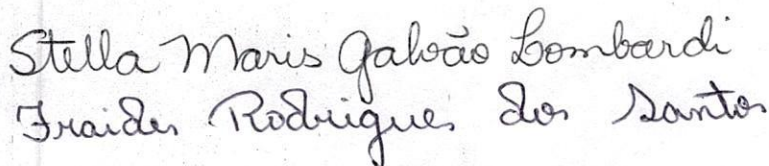 Stella Maris Galvão Lombardi
Iraides Rodrigues dos Santos